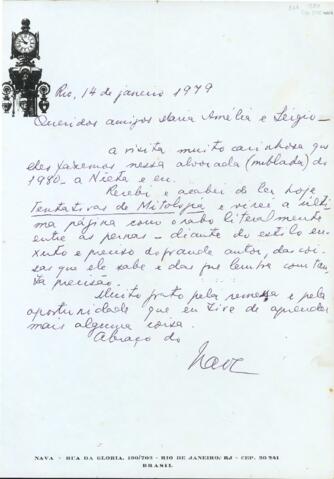 Rio, 14 de janeiro 1979
Queridos amigos Maria Amélia e Sérgio —
a visita muito carinhosa que
eles faremos nessa alvorada (nublada) de
1980 — a Nieta e eu.
Recebi e acabei de ler hoje
Tentativas de Mitologia e virei a últi-
ma página com o rabo literalmente
entre as pernas — diante do estilo en-
xuto e preciso do grande autor, das coi-
sas que ele sabe e das que lembra com tan-
ta precisão.
Muito grato pela remessa e pela
oportunidade que eu tive de aprender
mais alguma coisa.
Abraço do
Nava
NAVA — RUA DA GLORIA, 190/702 — RIO DE JANEIRO/RJ — CEP. 20 241
BRASIL